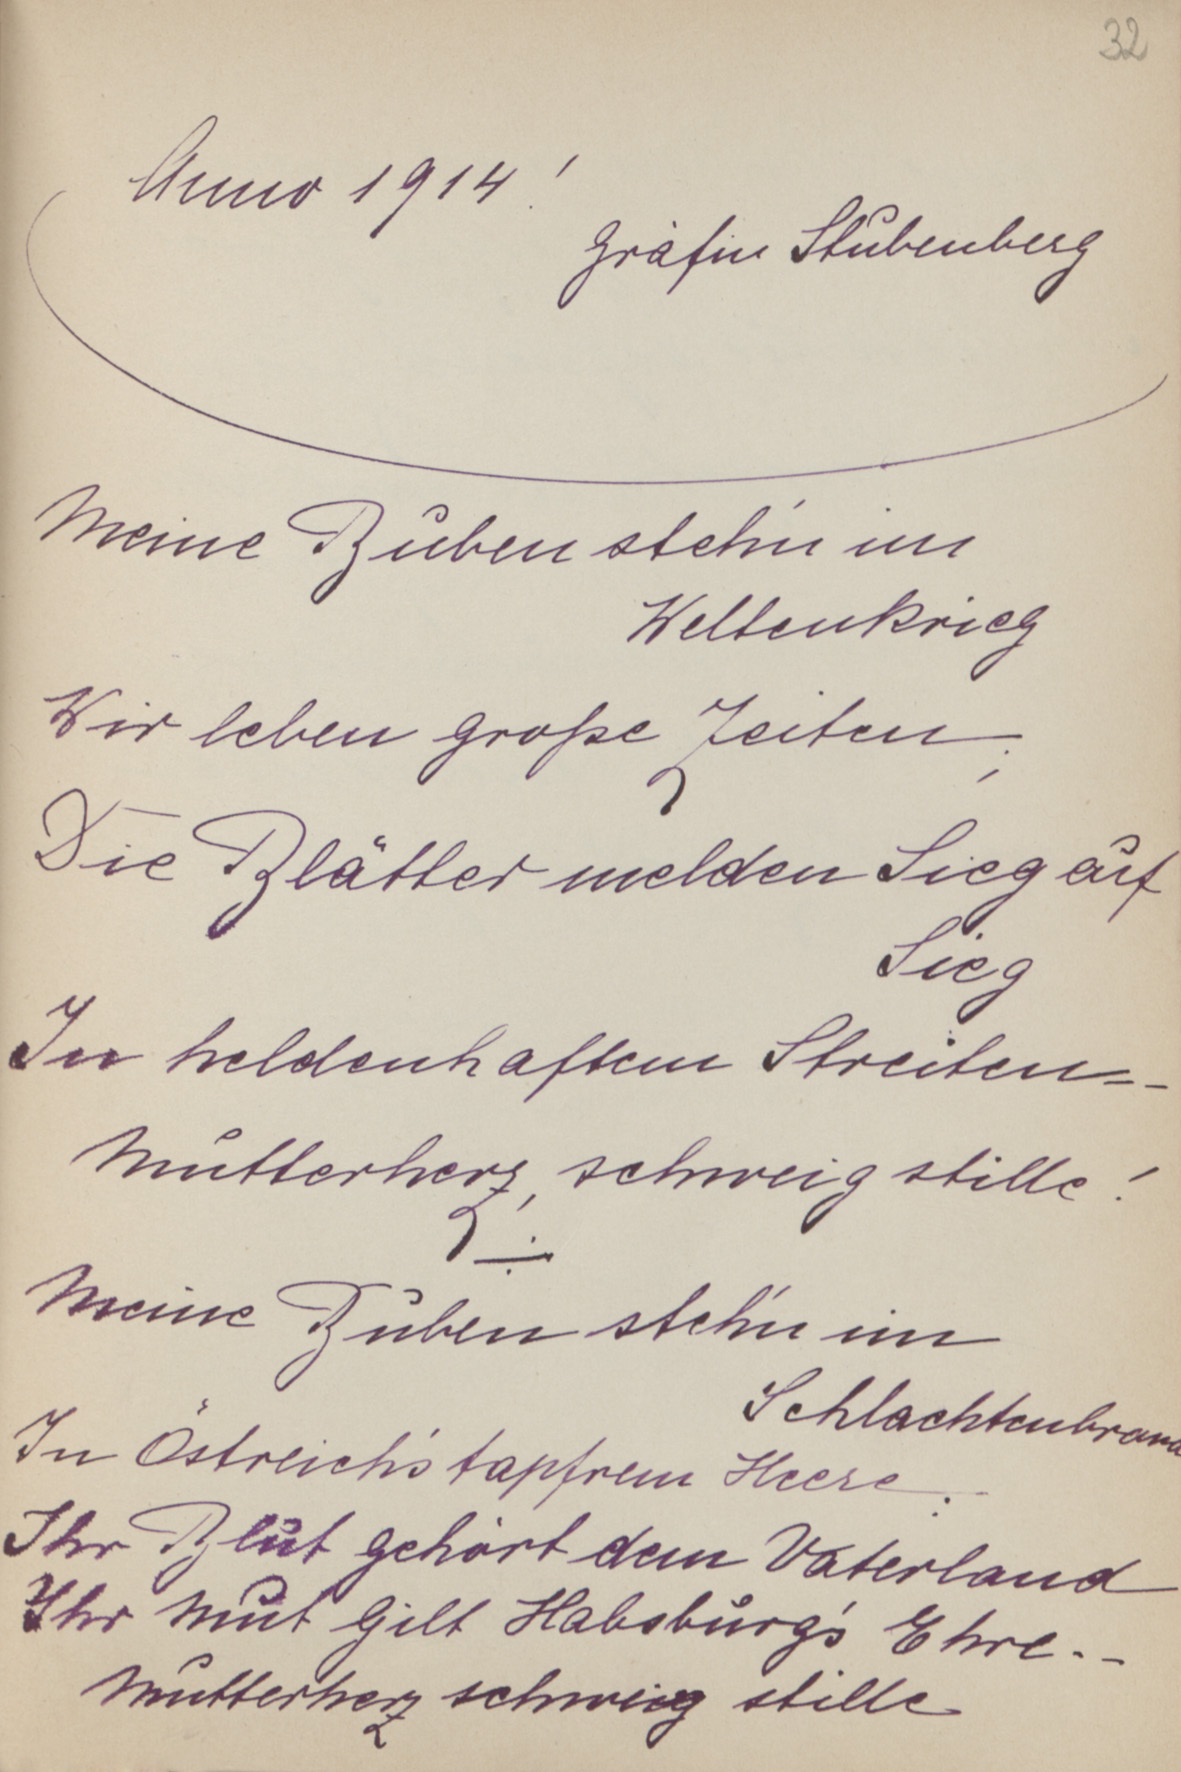 32
Anno 1914!
Gräfin Stubenberg
Meine Buben steh'n im
Weltenkrieg
Wir leben große Zeiten;
Die Blätter melden Sieg auf
Sieg
In heldenhaftem Streiten--
Mutterherz, schweig stille!
Meine Buben steh'n im
Schlachtenbrand
In Östreich's tapfrem Heere.
Ihr Blut gehört dem Vaterland
Ihr Mut gilt Habsburg's Ehre.-
Mutterherz schweig stille